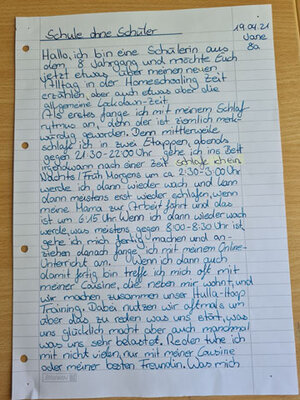 Schule ohne Schüler
19.04.21
Jane
8a
Hallo ich bin eine Schülerin aus
dem 8 Jahrgang und möchte Euch
jetzt etwas über meinen neuen
Alltag in der Homeschooling Zeit
erzählen aber auch etwas über die
allgemeine Lockdown-Zeit.
Als erstes fange ich mit meinem Schlaf-
rytmus an, denn der ist ziemlich merk-
würdig geworden. Denn mittlerweile
schlafe ich in zwei Etappen, abends
gegen 21:30-22:00 Uhr gehe ich ins Bett
irgendwann nach einer Zeit schlafe ich ein.
Nachts / Früh Morgens um ca 2:30-3:00 Uhr
werde ich dann wieder wach und kann
dann meistens erst wieder schlafen, wenn
meine Mama zur Arbeit fährt und das
ist um 6:15 Uhr. Wenn ich dann wieder wach
werde, was meistens gegen 8:00-8:30 Uhr ist,
gehe ich mich fertig machen und an-
ziehen danach fange ich mit meinem Online-
Unterricht an. Wenn ich dann auch
damit fertig bin treffe ich mich oft mit
meiner Cousine, die neben mir wohnt, und
wir machen zusammen unser Hulla-Hoop
Training. Dabei nutzen wir oftmals um
aber das zu reden was uns stört, was
uns glücklich macht aber auch manchmal
was uns sehr belastet. Reden tuhe ich
mit nicht vielen, nur mit meiner Cousine
oder meiner besten Freundin. Was mich